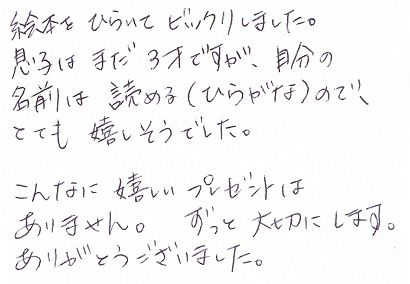 絵本を ひらいて ビックリしました。
息子は まだ 3才ですが、自分の
名前は 読める(ひらがな)ので、
とても 嬉しそうでした。
こんなに 嬉しい プレゼントは
ありません。 ずっと 大切に します。
ありがとうございました。